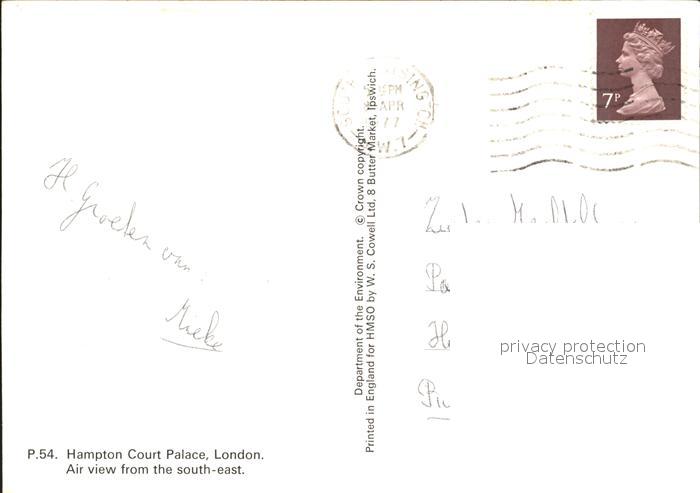 H. Groeten van
Mieke
P.54. Hampton Court Palace, London.
Air view from the south-east.
Department of the Environment. © Crown copyright.
Printed in England for HMSO by W. S. Cowell Ltd, 8 Butter Market, Ipswich.
APR
77
W.7
7P
privacy protection
Datenschutz